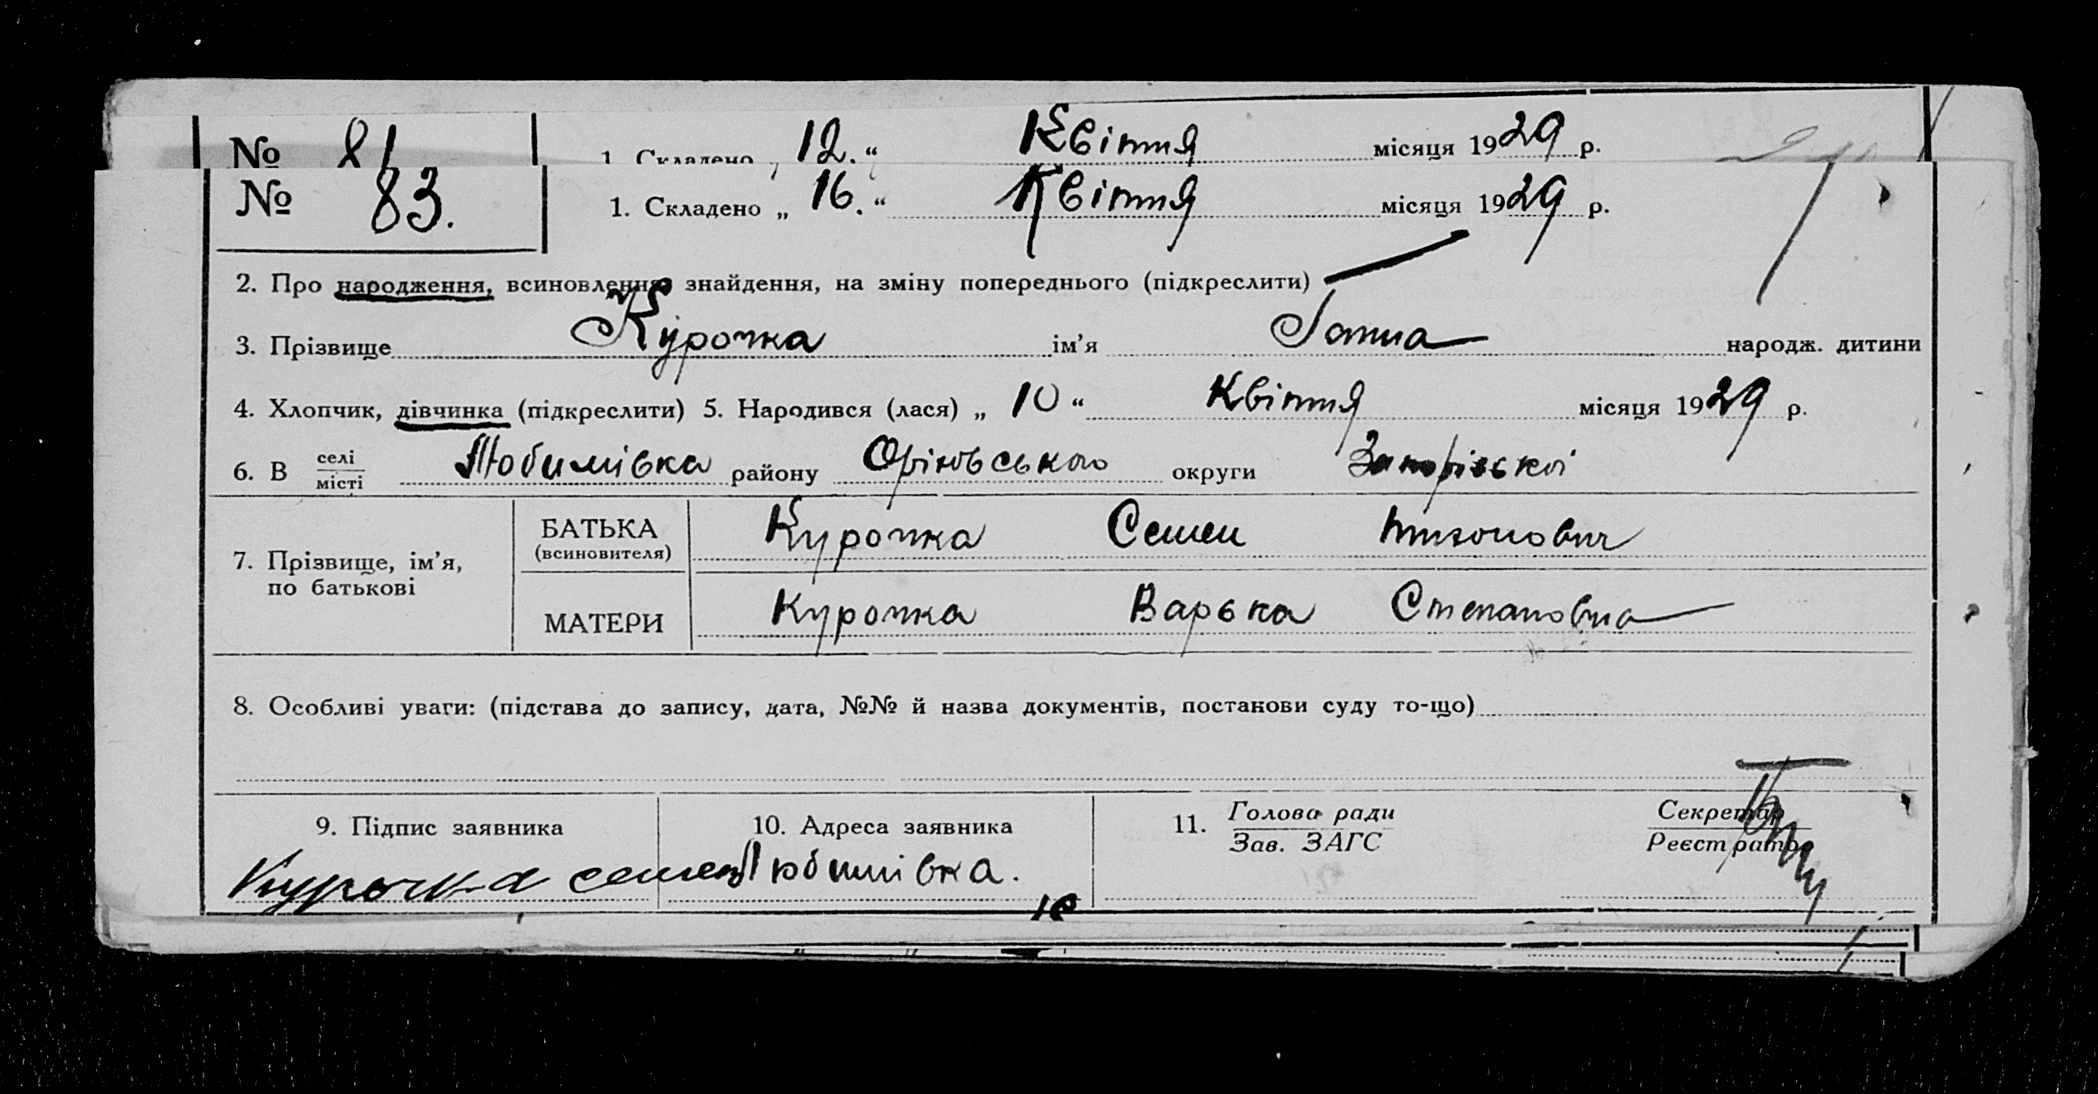 № 81 1. Складено „ 12. “ Квітня місяця 1929 р.
№ 83. 1. Складено „ 16. “ Квітня місяця 1929 р.
2. Про народження, всиновлення, знайдення, на зміну попереднього (підкреслити)
3. Прізвище Курочка ім’я Ганна народж. дитини
4. Хлопчик, дівчинка (підкреслити) 5. Народився (лася) „ 10 “ Квітня місяця 1929 р.
6. В селі місті Любимівка району Оріхівського округи Запорізької
7. Прізвище, ім’я, по батькові
БАТЬКА (всиновителя) Курочка Семен Тихонович
МАТЕРИ Курочка Варька Степановна
8. Особливі уваги: (підстава до запису, дата, №№ й назва документів, постанови суду то-що)
9. Підпис заявника 10. Адреса заявника 11. Голова ради Секретар
Зав. ЗАГС Реєстратор
Курочка семен Любимівка.